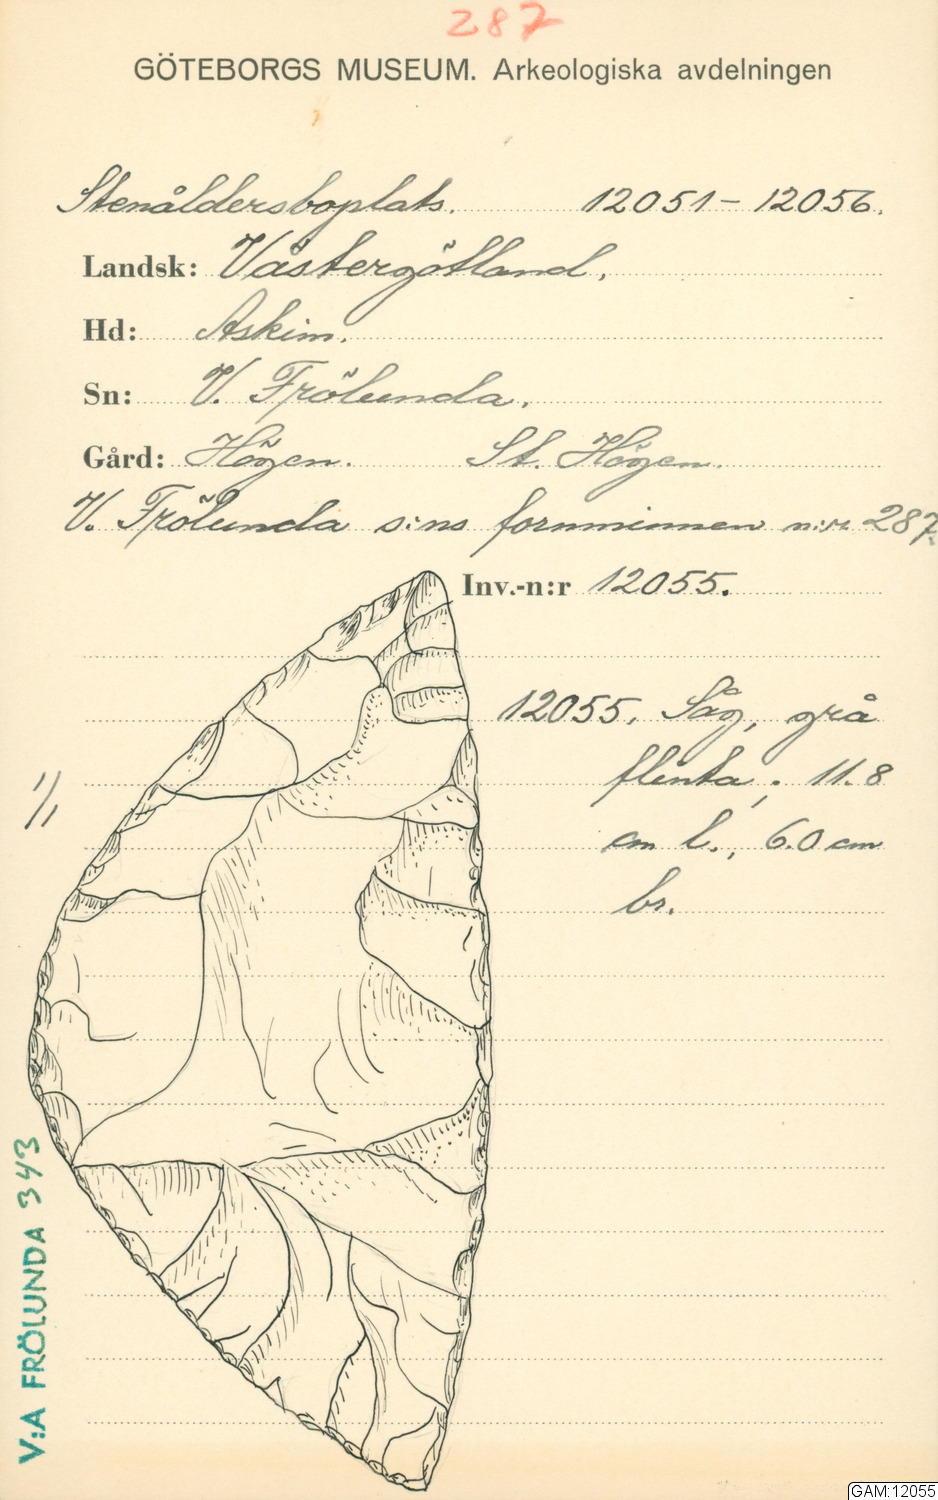 287
GÖTEBORGS MUSEUM. Arkeologiska avdelningen
Stenåldersboplats. 12051 – 12056.
Landsk: Västergötland.
Hd: Askim.
Sn: V. Frölunda.
Gård: Högen. St. Högen.
V. Frölunda s:ns fornminnen n:r 287.
Inv.-n:r 12055.
12055. Såg, grå
flinta; 11.8
cm l., 6.0 cm
br.
1/1
V:A FRÖLUNDA 343
GAM:12055